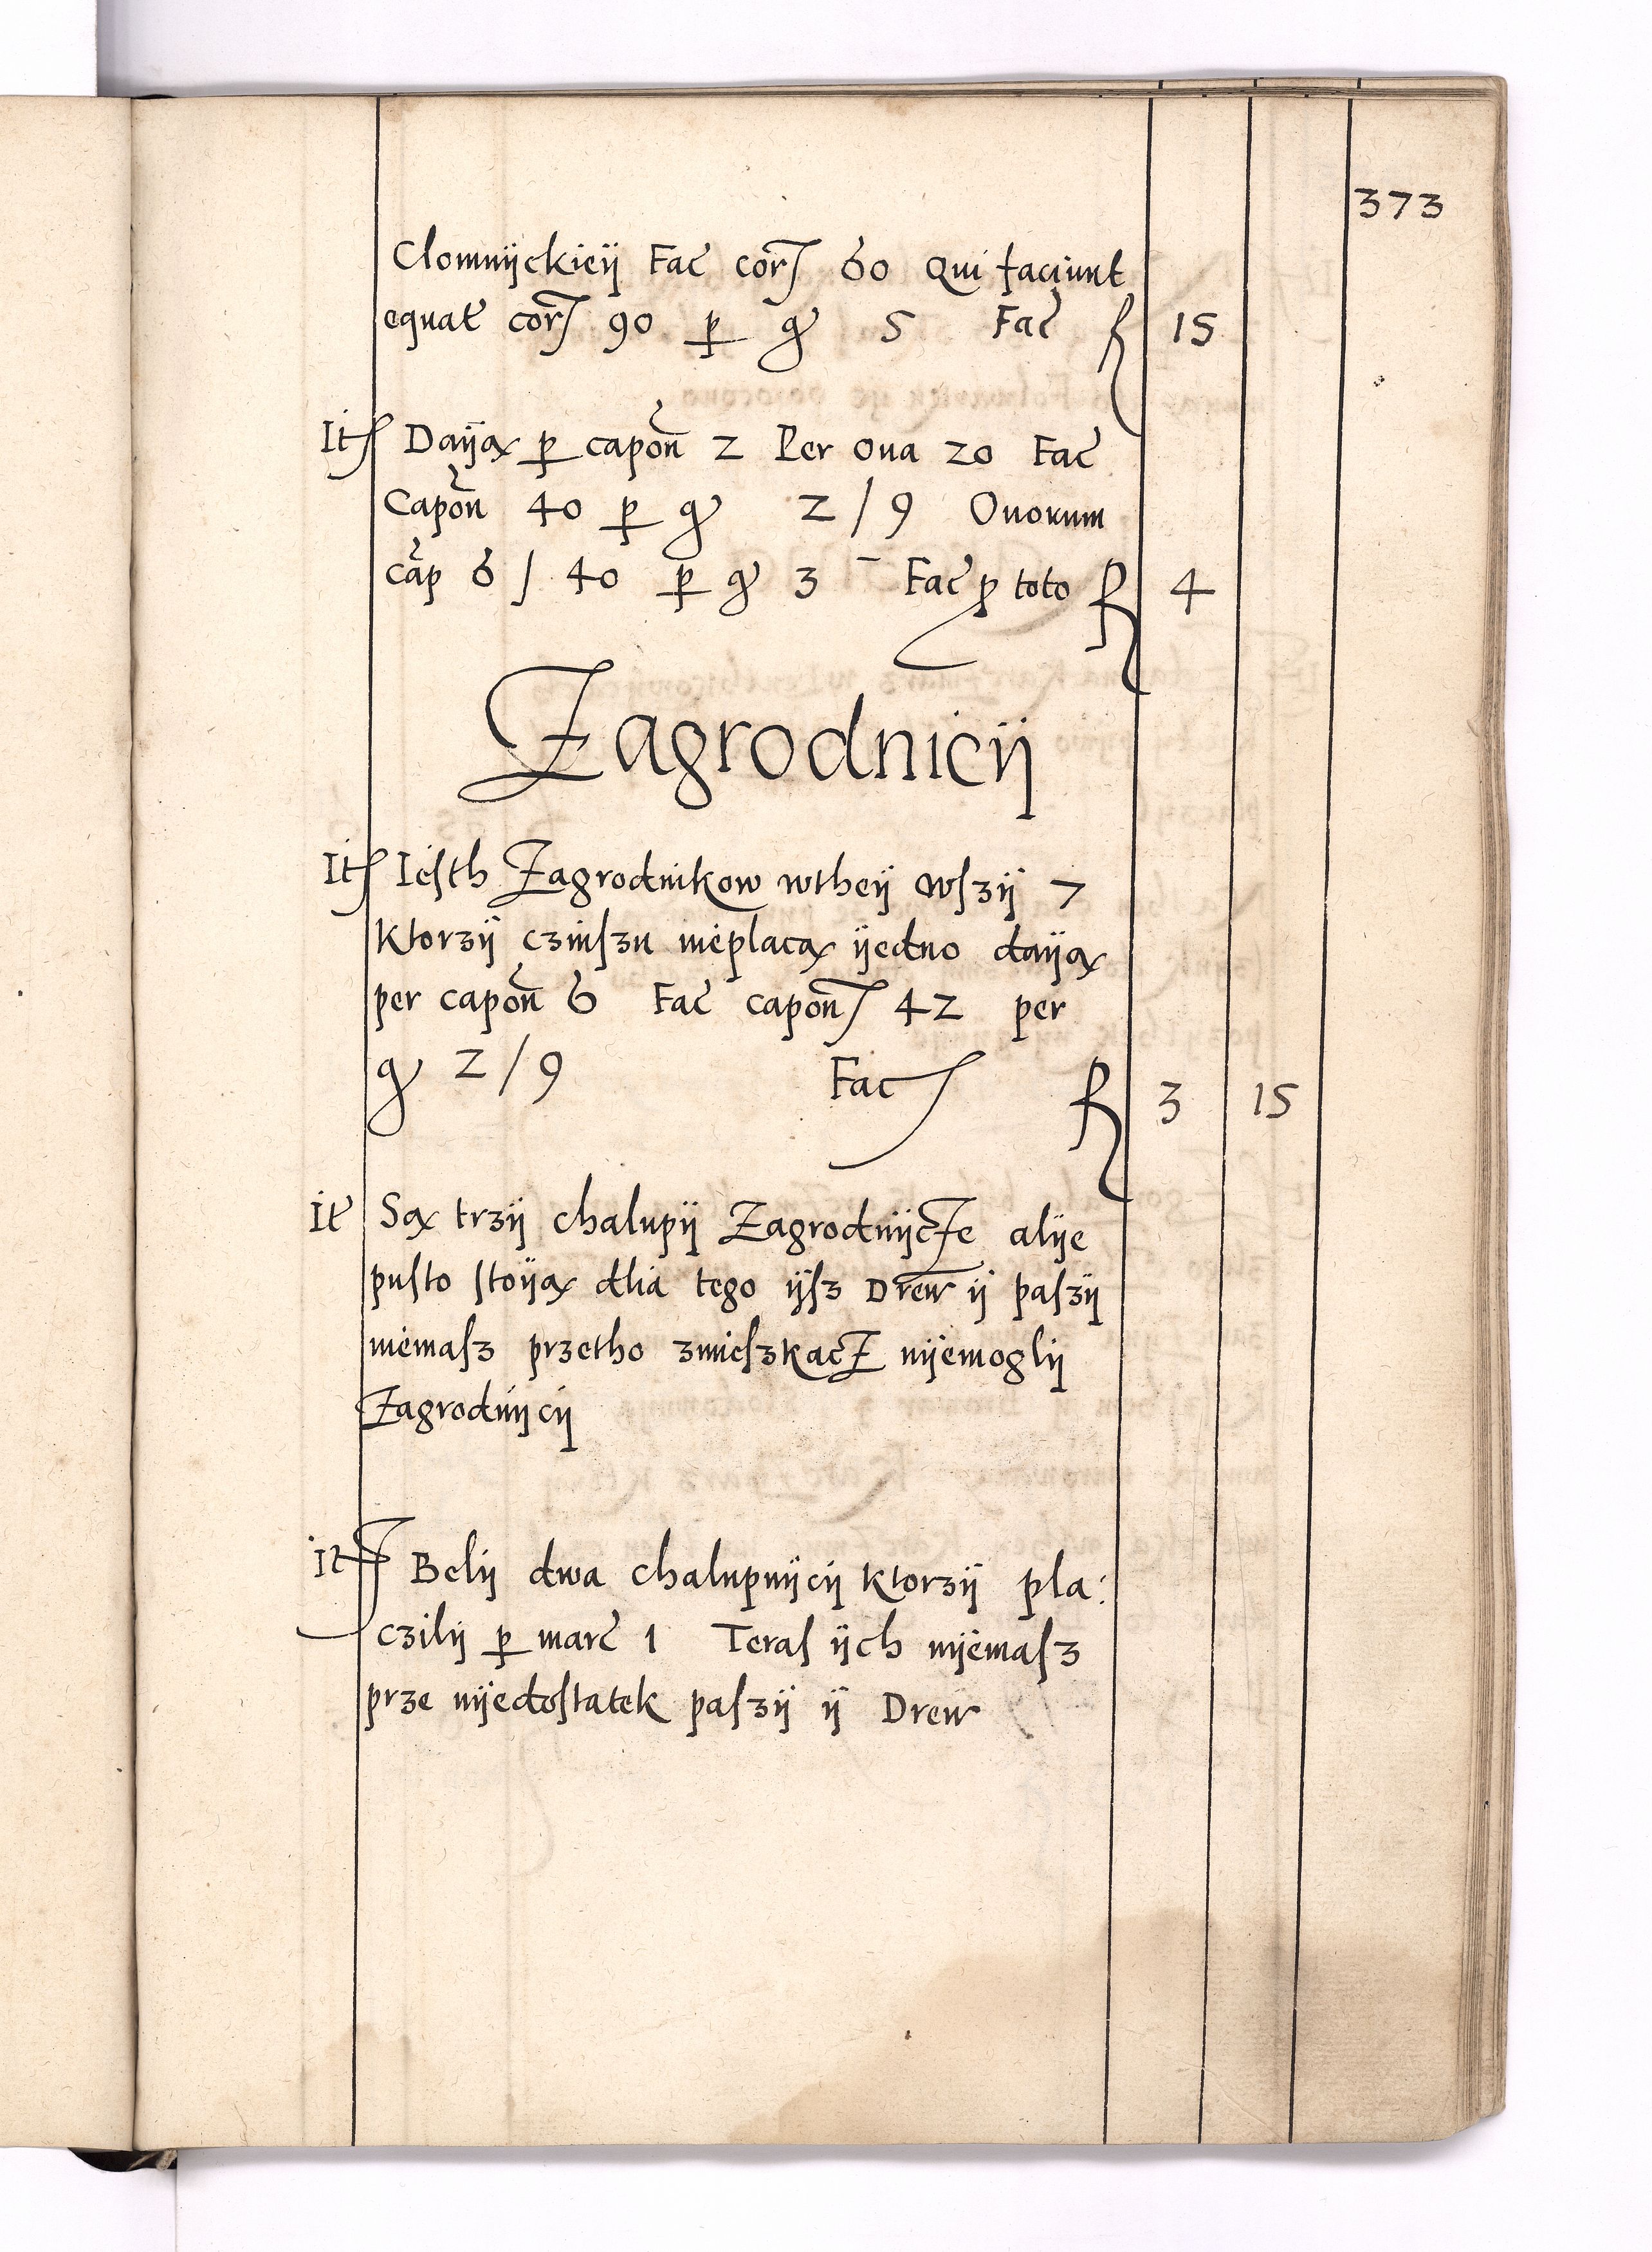 373
Clomnÿckieÿ Fac̃ cor̃ʃ 60 Qui faciunt
equat̃ cor̃ʃ 90 ꝑ gͬ 5 Fac̃ fl 15
Itʃ Daÿax ꝑ capon̄ 2 Per oua 20 Fac̃
Capon̄ 40 ꝑ gͬ 2 / 9 Ouorum
cap̄ 6 / 40 ꝑ gͬ 3 Fac̃ ꝓ toto fl 4
Zagrodnicÿ
Itʃ Iesth Zagrodnikow wtheÿ wſzÿ 7
Ktorzÿ czinſzu nieplacax ÿedno daÿax
per capon̄ 6 Fac̃ capon̄ʃ 42 per
gͬ 2 / 9 Facʃ fl 3 15
It̃ Sax trzÿ chalupÿ Zagrodnÿcze alÿe
puſto ſtoÿax dlia tego ÿſz Drew ÿ paſzÿ
niemaſz przetho zmieſzkacz nÿemoglÿ
Zagrodnÿcÿ
Itʃ Belÿ dwa chalupnÿcÿ Ktorzÿ pla:
czilÿ ꝑ marc̃ 1 Teraſ ÿch nÿemaſz
prze nÿedoſtatek paſzÿ ÿ Drew